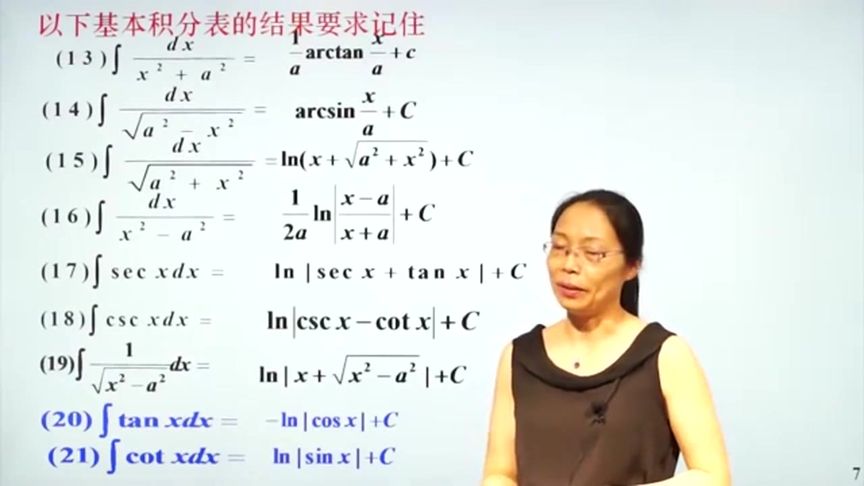 以下基本积分表的结果要求记住
(13)∫ dx/(x² + a²) = 1/a arctan x/a + c
(14)∫ dx/√(a² − x²) = arcsin x/a + C
(15)∫ dx/√(a² + x²) = ln(x + √(a² + x²)) + C
(16)∫ dx/(x² − a²) = 1/2a ln|(x − a)/(x + a)| + C
(17)∫ sec xdx = ln |sec x + tan x| + C
(18)∫ csc xdx = ln|csc x − cot x| + C
(19)∫ 1/√(x² − a²) dx = ln | x + √(x² − a²) | +C
(20) ∫ tan xdx = −ln | cos x | +C
(21) ∫ cot xdx = ln | sin x | +C
7